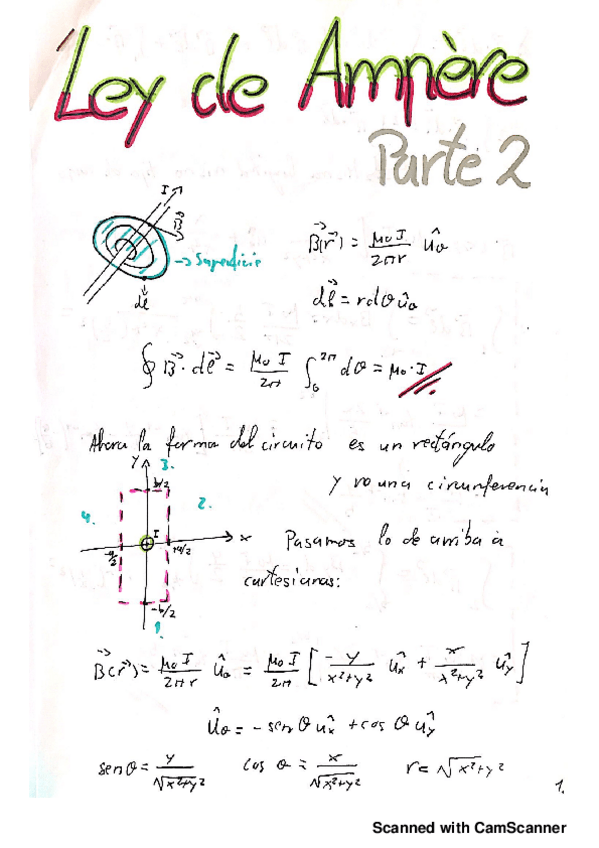 Ley de Ampère
Parte 2
I
B⃗
→ Superficie
dl⃗
B⃗(r⃗) = μ₀ I / 2πr û_θ
dl⃗ = r dθ û_θ
∮ B⃗ · dl⃗ = μ₀ I / 2π ∫₀^2π dθ = μ₀ · I
Ahora la forma del circuito es un rectángulo
y no una circunferencia
Y 3.
b/2
4. 2.
I
-a/2 +a/2 x
-b/2
1.
Pasamos lo de arriba a
cartesianas:
B⃗(r⃗) = μ₀ I / 2πr û_θ = μ₀ I / 2π [ -y / x²+y² û_x + x / x²+y² û_y ]
û_θ = - sen θ û_x + cos θ û_y
sen θ = y / √x²+y² cos θ = x / √x²+y² r = √x²+y²
1.
Scanned with CamScanner